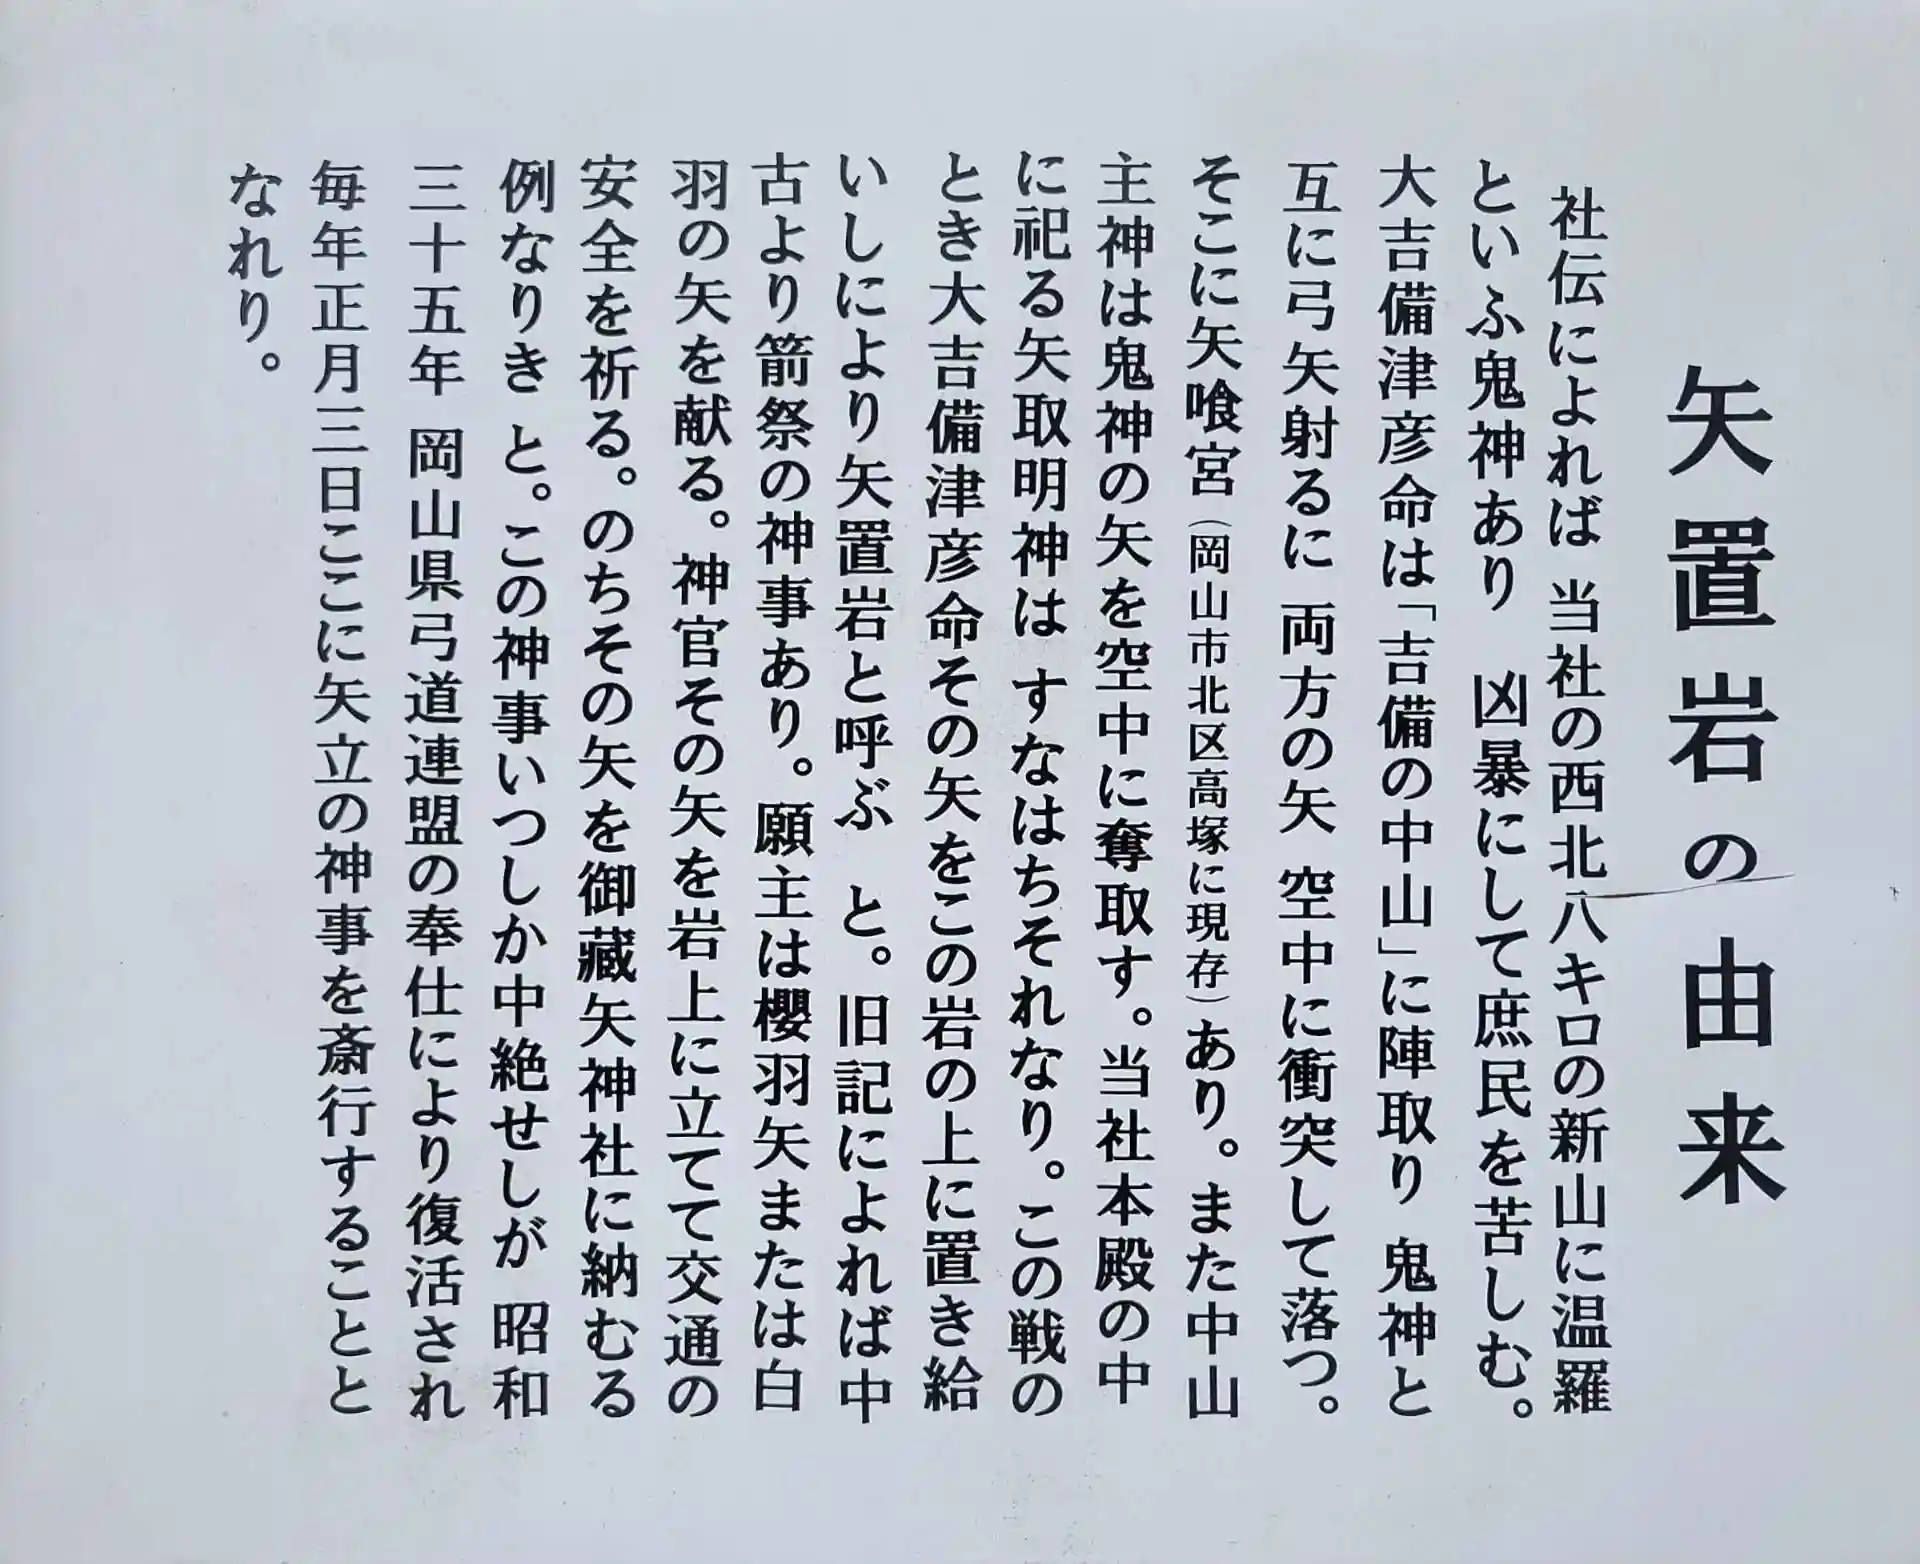 矢置岩の由来
社伝によれば 当社の西北八キロの新山に温羅
といふ鬼神あり 凶暴にして庶民を苦しむ。
大吉備津彦命は「吉備の中山」に陣取り 鬼神と
互に弓矢射るに 両方の矢 空中に衝突して落つ。
そこに矢喰宮（岡山市北区高塚に現存）あり。また中山
主神は鬼神の矢を空中に奪取す。当社本殿の中
に祀る矢取明神は すなはちそれなり。この戦の
とき大吉備津彦命その矢をこの岩の上に置き給
いしにより矢置岩と呼ぶ と。旧記によれば中
古より箭祭の神事あり。願主は櫻羽矢または白
羽の矢を献る。神官その矢を岩上に立てて交通の
安全を祈る。のちその矢を御蔵矢神社に納むる
例なりき と。この神事いつしか中絶せしが 昭和
三十五年 岡山県弓道連盟の奉仕により復活され
毎年正月三日ここに矢立の神事を斎行することと
なれり。